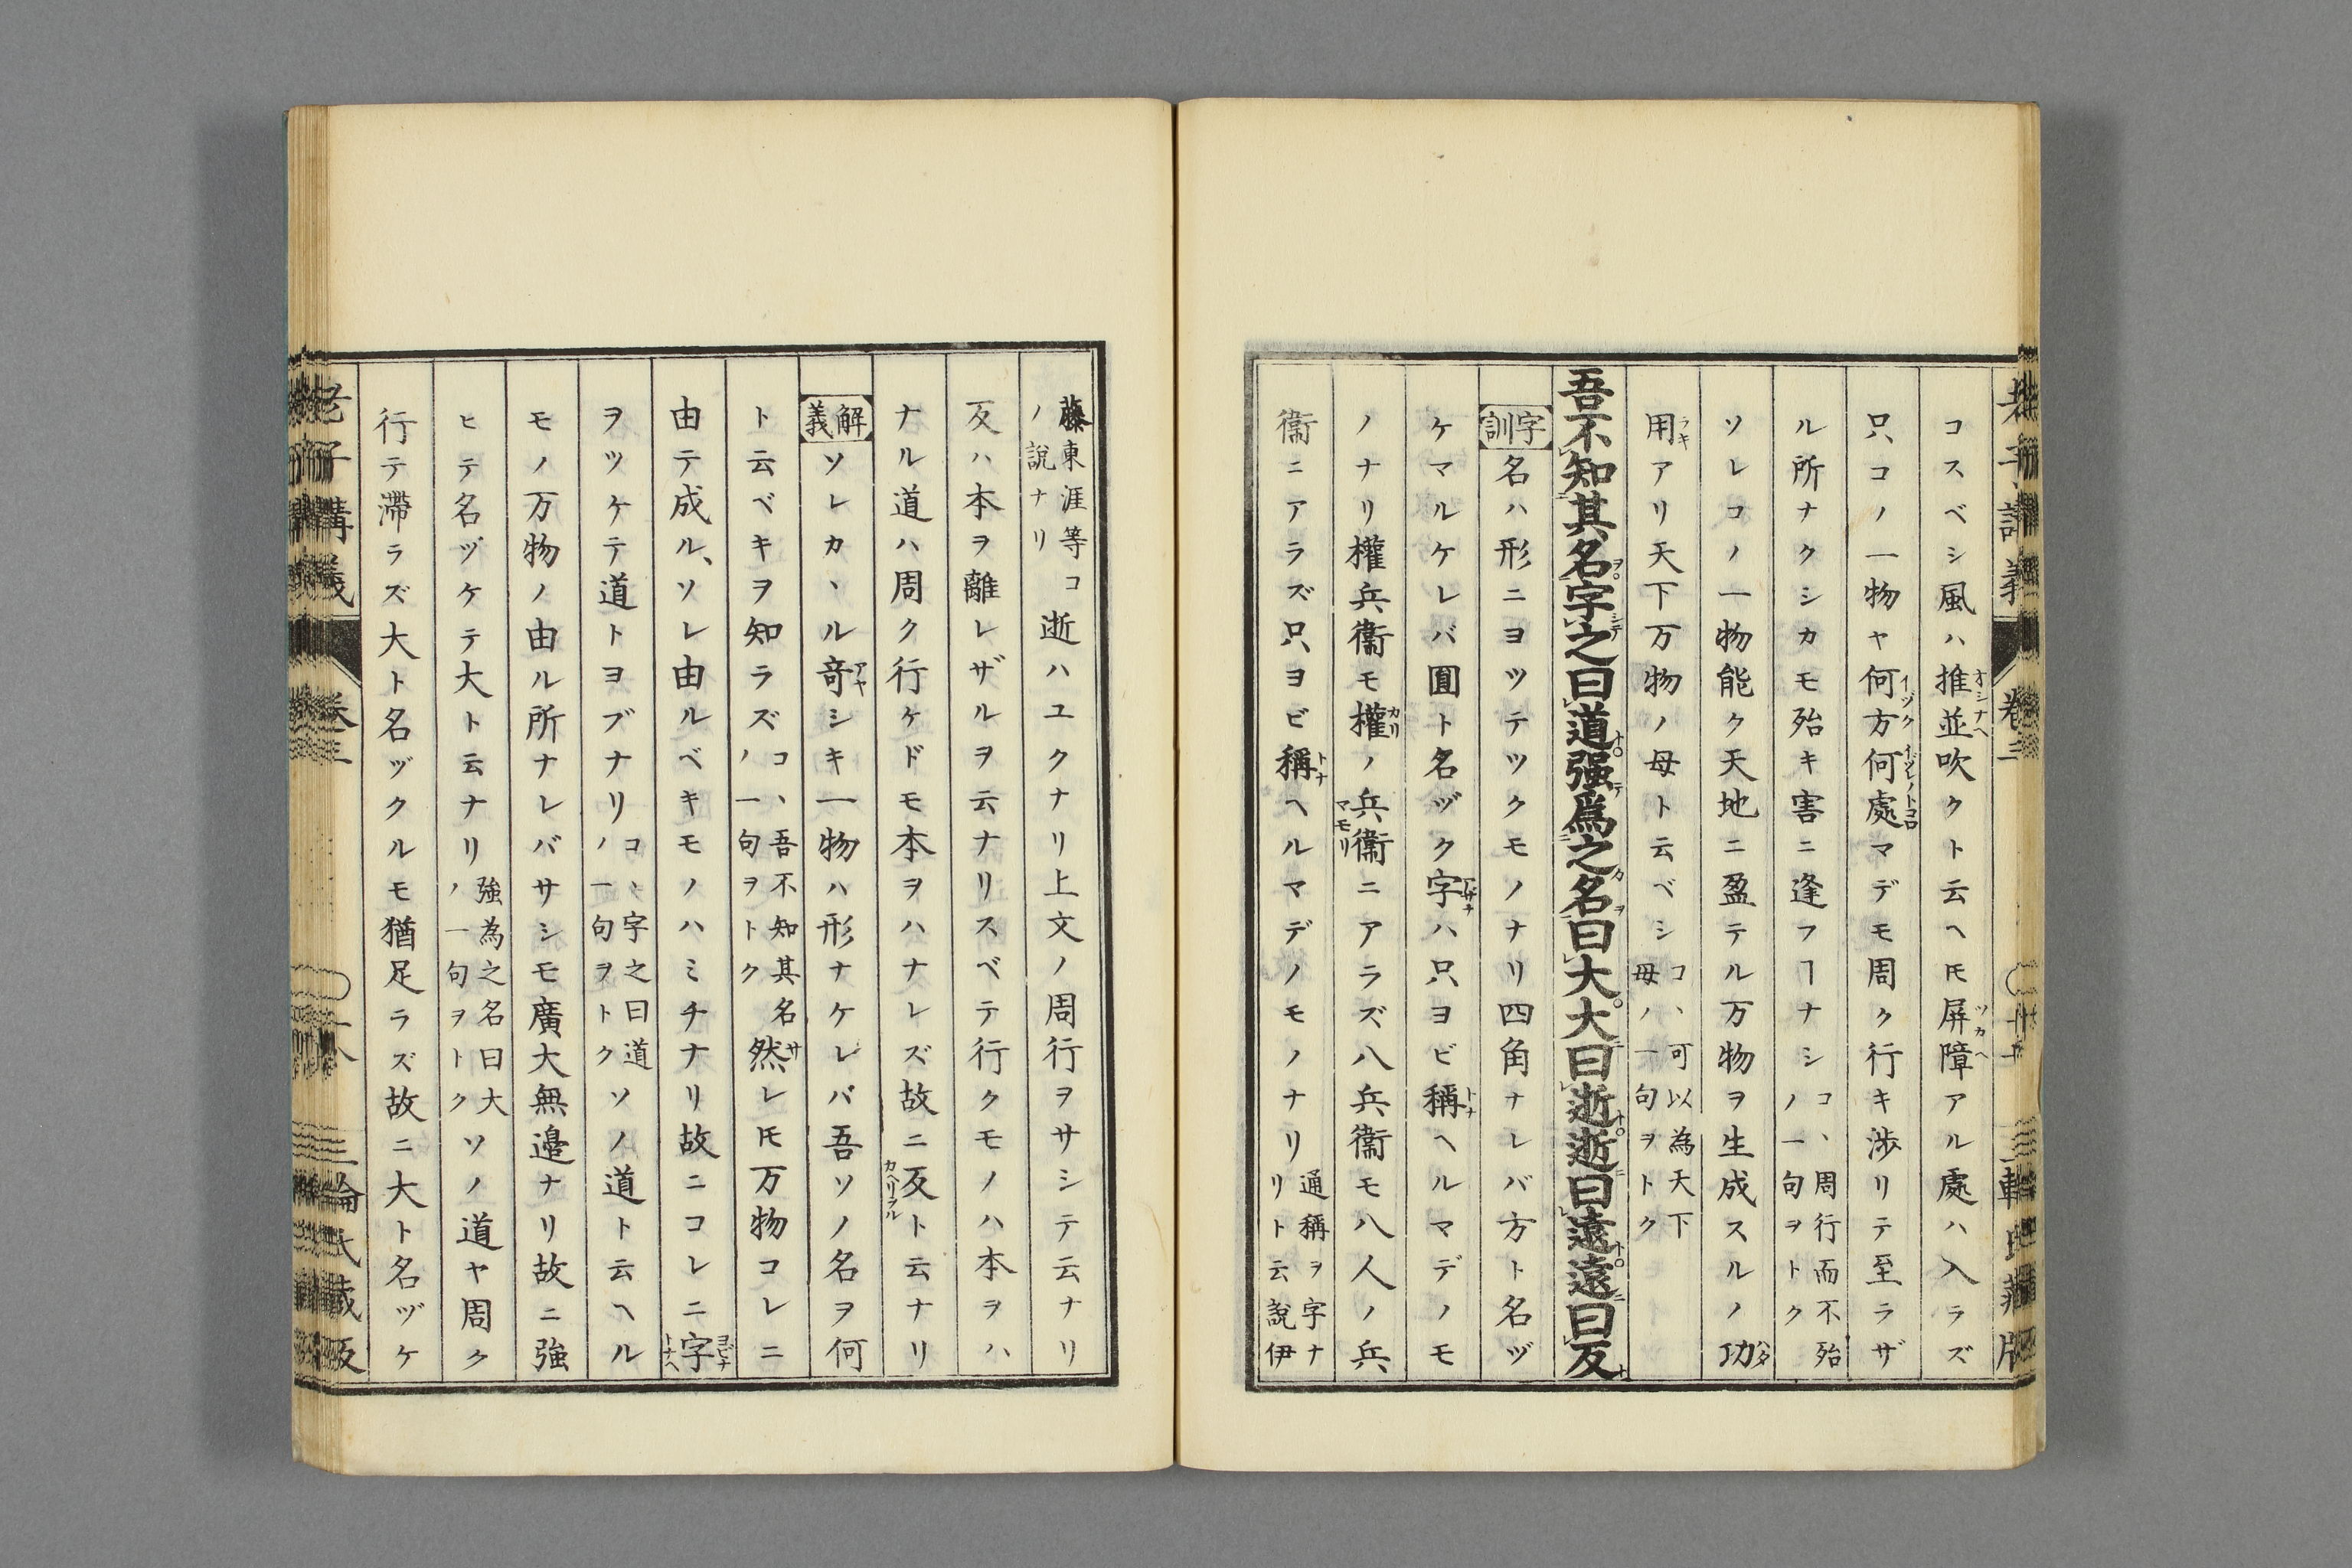 コスベシ風ハ推並吹クト云ヘ𪜈屏障アル處ハ入ラズ
只コノ一物ヤ何方何處マデモ周ク行キ渉リテ至ラザ
ル所ナクシカモ殆キ害ニ逢フヿナシコヽ周行而不殆ノ一句ヲトク
ソレコノ一物能ク天地ニ盈テル万物ヲ生成スルノ功
用アリ天下万物ノ母ト云ベシコヽ可以為天下母ノ一句ヲトク
吾不知其名字之曰道强爲之名曰大大曰逝逝曰遠遠曰反
字訓名ハ形ニヨツテツクモノナリ四角ナレバ方ト名ヅ
ケマルケレバ圓ト名ヅク字ハ只ヨビ稱ヘルマデノモ
ノナリ權兵衞モ權ノ兵衞ニアラズ八兵衞モ八人ノ兵
衞ニアラズ只ヨビ稱ヘルマデノモノナリ通稱ヲ字ナリト云説伊
藤東涯等コノ説ナリ逝ハユクナリ上文ノ周行ヲサシテ云ナリ
反ハ本ヲ離レザルヲ云ナリスベテ行クモノハ本ヲハ
ナル道ハ周ク行ケドモ本ヲハナレズ故ニ反ト云ナリ
解義ソレカヽル竒シキ一物ハ形ナケレバ吾ソノ名ヲ何
ト云ベキヲ知ラズコヽ吾不知其名ノ一句ヲトク然レ𪜈万物コレニ
由テ成ル、ソレ由ルベキモノハミチナリ故ニコレニ字
ヲツケテ道トヨブナリコヽ字之曰道ノ一句ヲトクソノ道ト云ヘル
モノ万物ノ由ル所ナレバサシモ廣大無邉ナリ故ニ強
ヒテ名ヅケテ大ト云ナリ強為之名曰大ノ一句ヲトクソノ道ヤ周ク
行テ滞ラズ大ト名ヅクルモ猶足ラズ故ニ大ト名ヅケ
老子講義 卷三